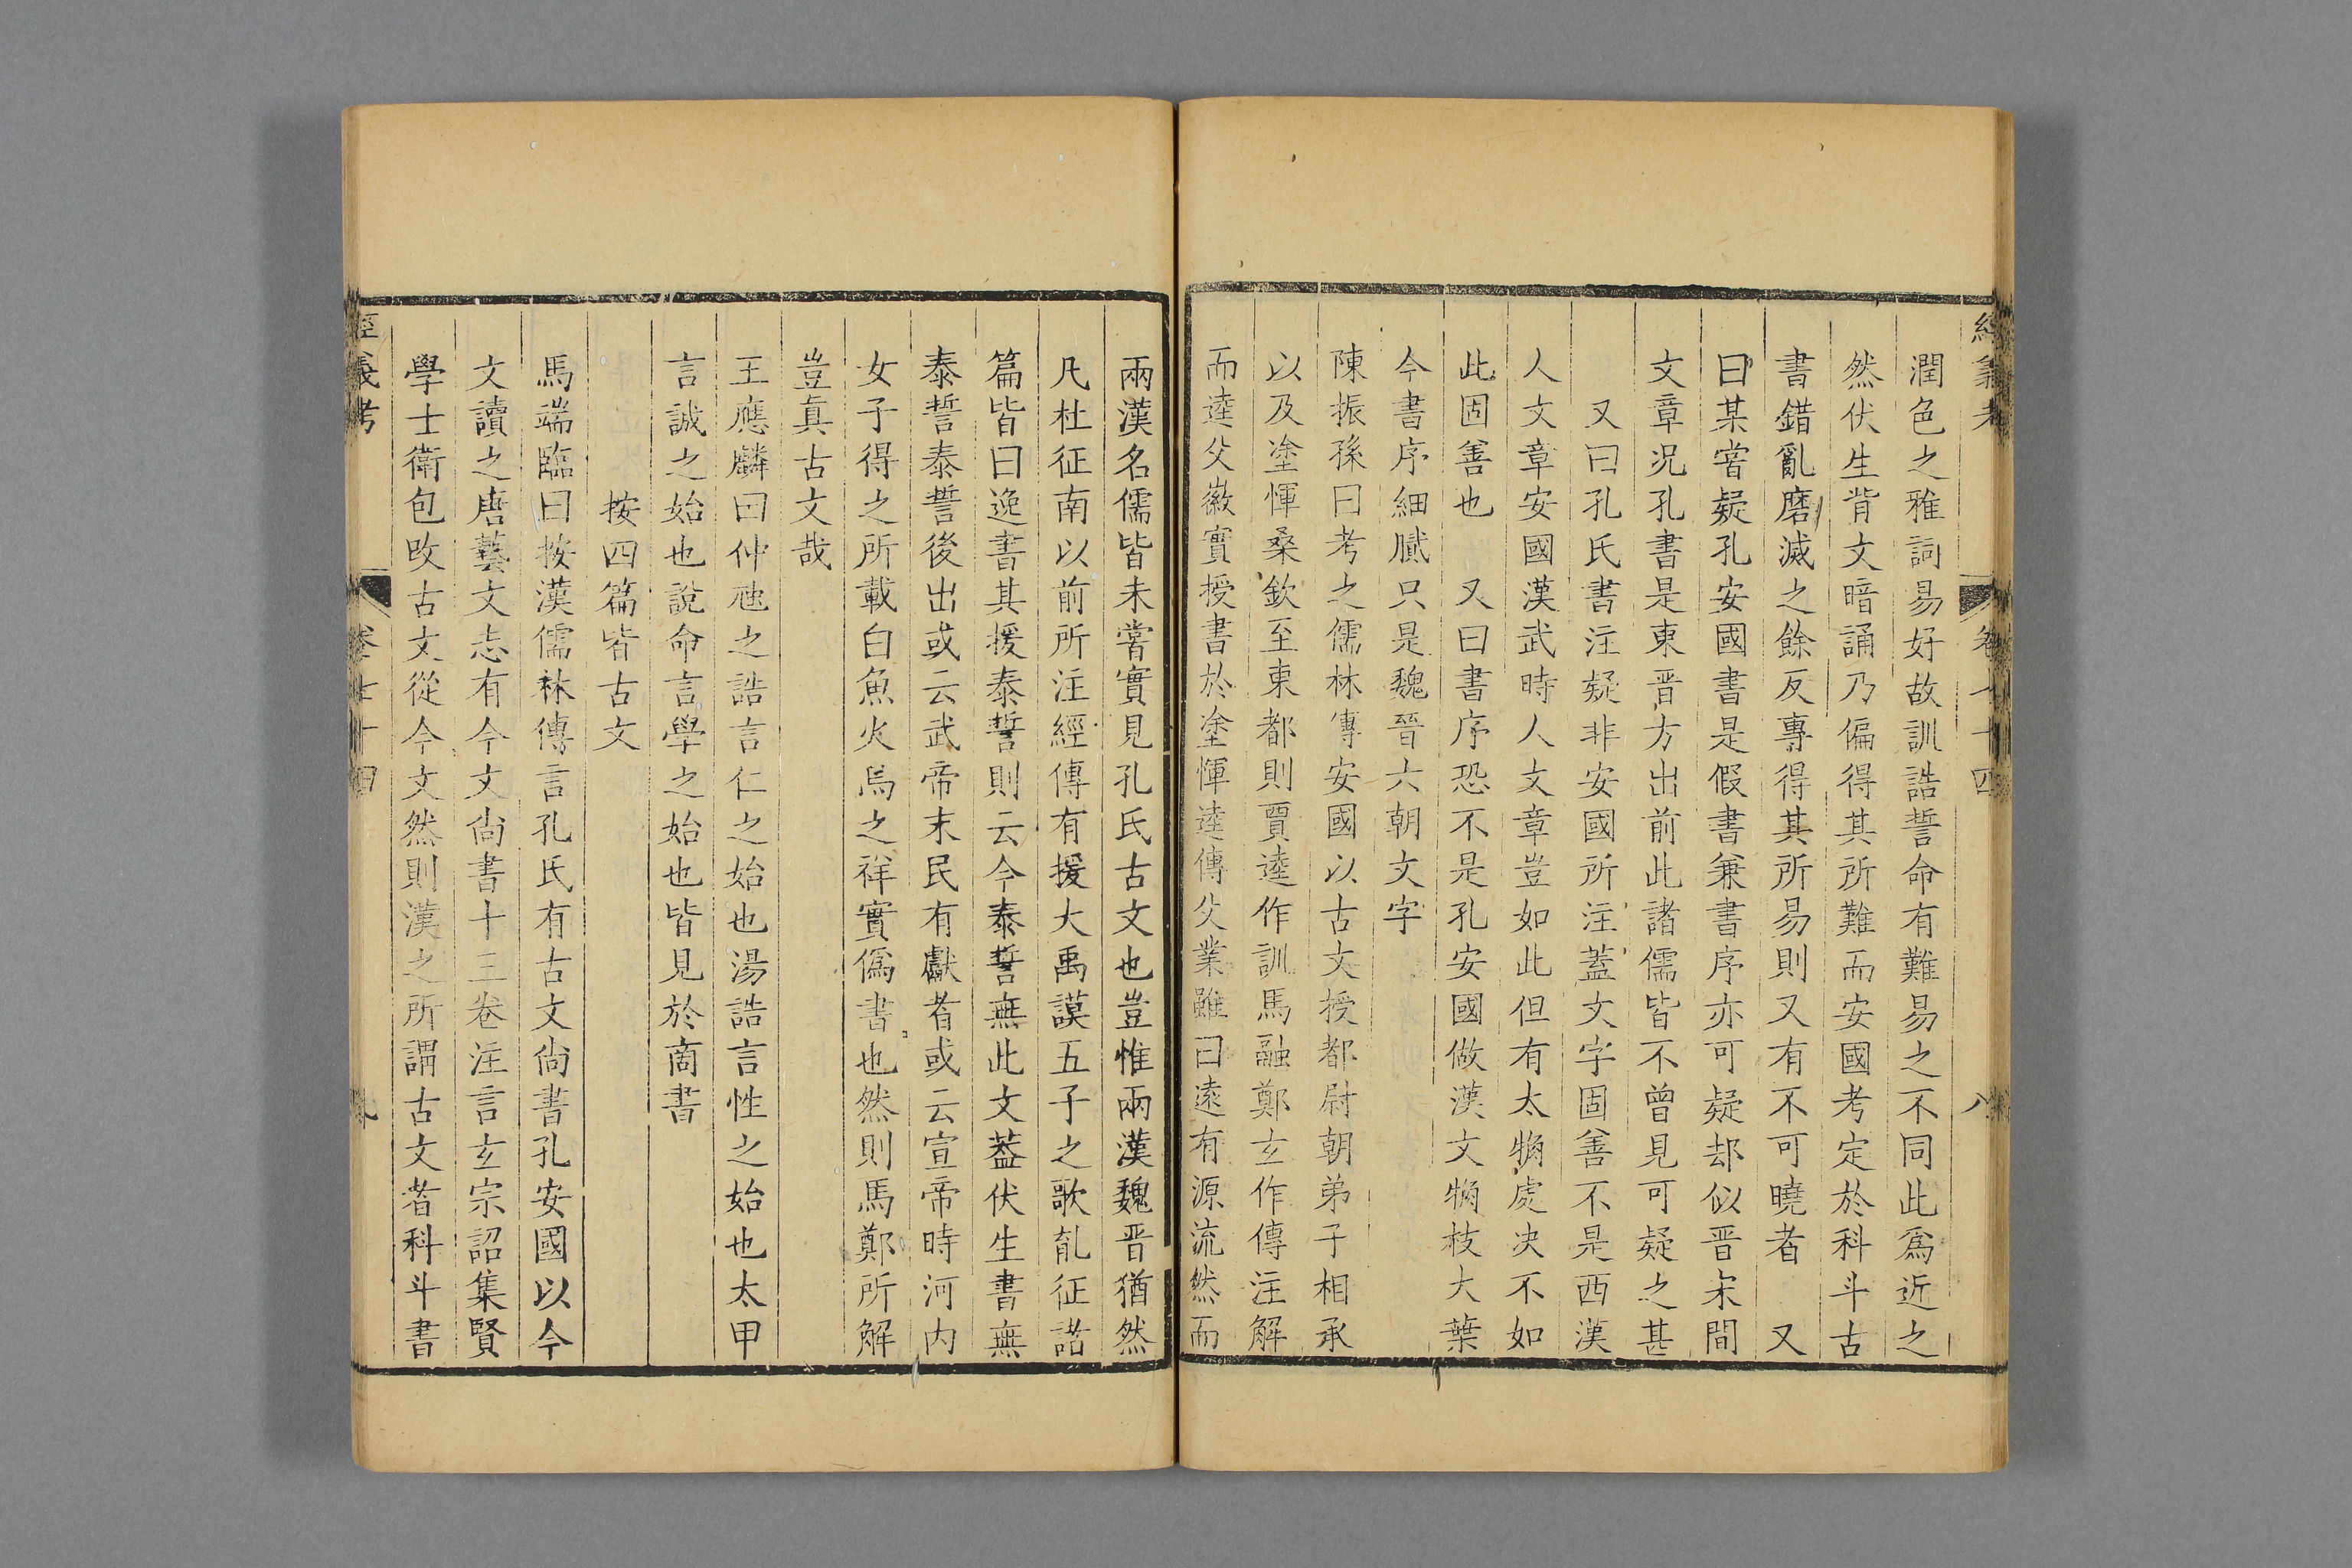 經義考
卷七十四
八
潤色之雅詞易好故訓誥誓命有難易之不同此爲近之
然伏生背文暗誦乃偏得其所難而安國考定於科斗古
書錯亂磨滅之餘反專得其所易則又有不可曉者　又
曰某嘗疑孔安國書是假書兼書序亦可疑却似晉宋間
文章况孔書是東晉方出前此諸儒皆不曾見可疑之甚
又曰孔氏書注疑非安國所注蓋文字固善不是西漢
人文章安國漢武時人文章豈如此但有太麄處决不如
此固善也　又曰書序恐不是孔安國做漢文麄枝大葉
今書序細膩只是魏晉六朝文字
陳振孫曰考之儒林傳安國以古文授都尉朝弟子相承
以及塗惲桑欽至東都則賈逵作訓馬融鄭玄作傳注解
而逵父徽實授書於塗惲逵傳父業雖曰遠有源流然而
兩漢名儒皆未嘗實見孔氏古文也豈惟兩漢魏晋猶然
凡杜征南以前所注經傳有援大禹謨五子之歌胤征諸
篇皆曰逸書其援泰誓則云今泰誓無此文葢伏生書無
泰誓泰誓後出或云武帝末民有獻者或云宣帝時河内
女子得之所載白魚火烏之祥實僞書也然則馬鄭所解
豈眞古文哉
王應麟曰仲虺之誥言仁之始也湯誥言性之始也太甲
言誠之始也說命言學之始也皆見於商書
按四篇皆古文
馬端臨曰按漢儒林傳言孔氏有古文尚書孔安國以今
文讀之唐藝文志有今文尚書十三卷注言玄宗詔集賢
學士衛包攺古文從今文然則漢之所謂古文者科斗書
經義考
卷七十四
九